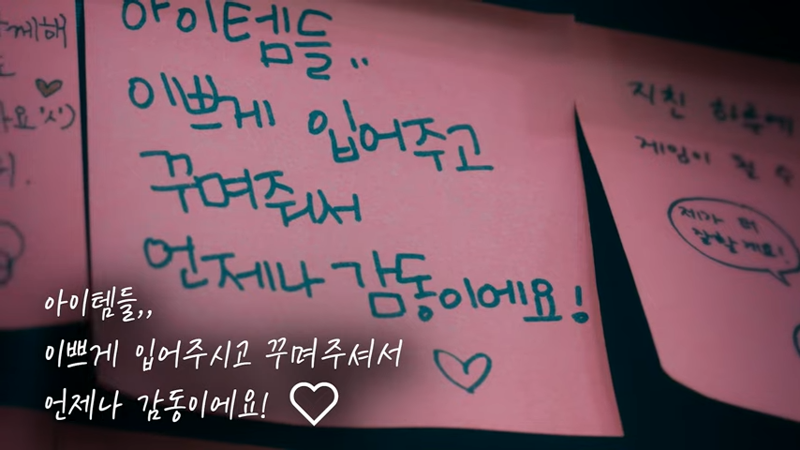 아이템들..
이쁘게 입어주고
꾸며줘서
언제나 감동이에요!
지친 하루에
게임이 될 수
제가 더
잘할게요!
아이템들,,
이쁘게 입어주시고 꾸며주셔서
언제나 감동이에요!